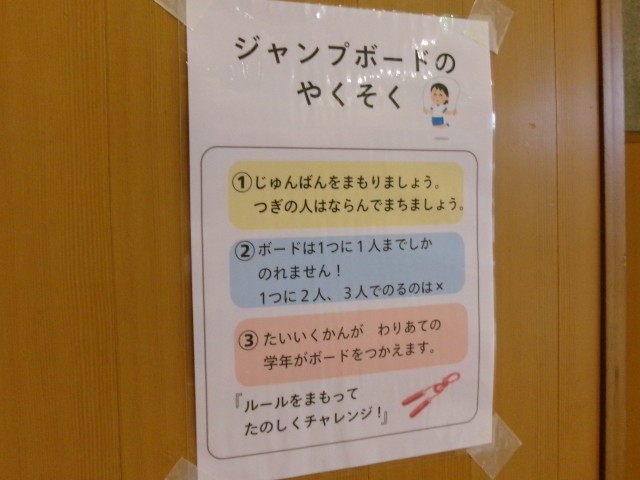 ジャンプボードの
やくそく
①じゅんばんをまもりましょう。
つぎの人はならんでまちましょう。
②ボードは1つに1人までしか
のれません！
1つに2人、3人でのるのは×
③たいいくかんが　わりあての
学年がボードをつかえます。
『ルールをまもって
たのしくチャレンジ！』